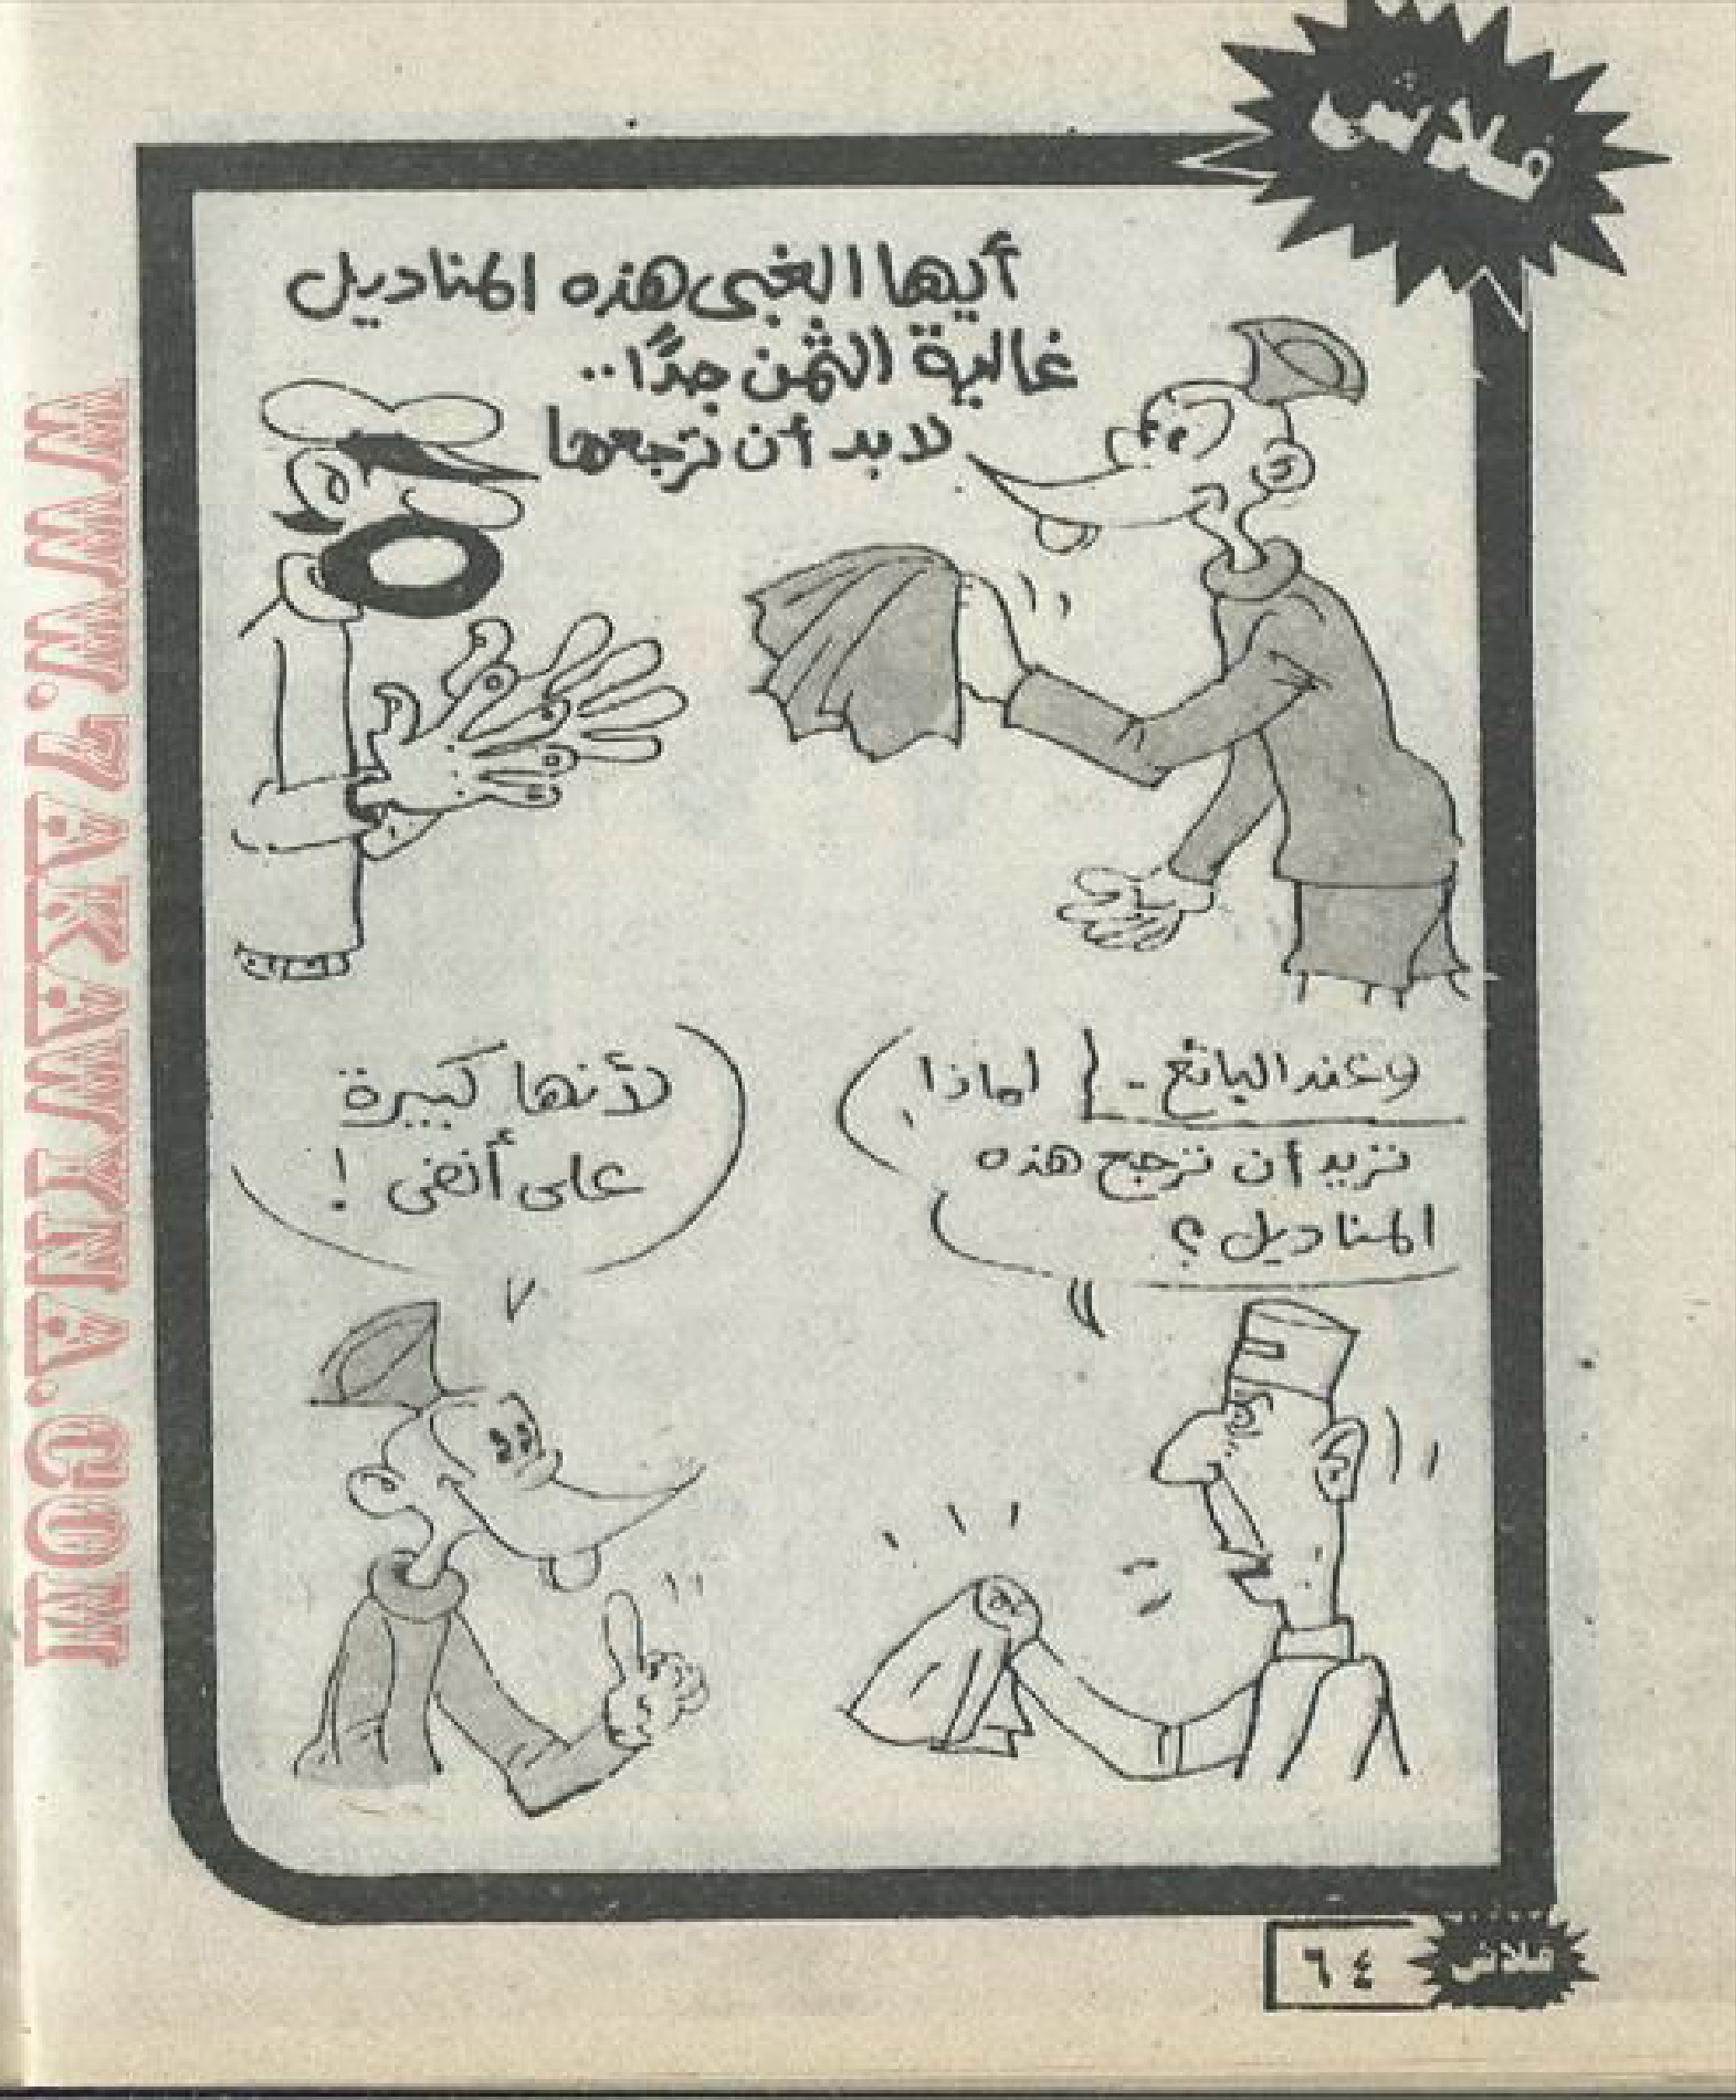 فلاش
أيها الغبى هذه المناديل
غالية الثمن جدًا..
لا بد أن ترجعها
وعند البائع -
لماذا
تريد أن ترجع هذه
المناديل؟
لأنها كبيرة
على أنفى !
٦٤
فلاش
WWW.7AKAWYNA.COM